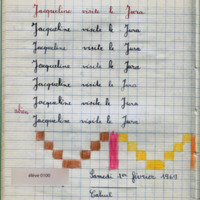 Jacqueline visite le Jura
Jacqueline visite le Jura
Jacqueline visite le Jura
Jacqueline visite le Jura
Jacqueline visite le Jura
Jacqueline visite le Jura
Jacqueline visite le Jura
élève 0100
Samedi 1er février 1969
Calcul